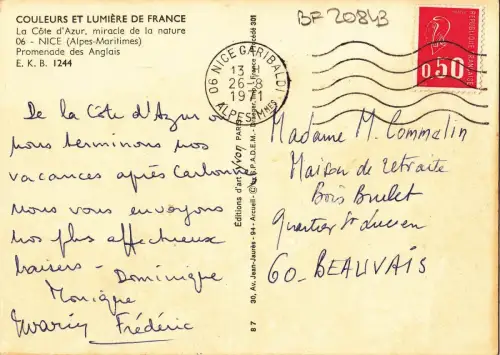 COULEURS ET LUMIÈRE DE FRANCE
La Côte d'Azur, miracle de la nature
06 - NICE (Alpes-Maritimes)
Promenade des Anglais
E. K. B. 1244
BF 20843
06 NICE GARIBALDI
13
26-8
1971
ALPES MMES
REPUBLIQUE FRANÇAISE
0,50
De la Côte d'Azur où
nous terminons nos
vacances après Carbonne
nous vous envoyons
nos plus affectueux
baisers - Dominique
Monique
Frédéric
Madame M. Commelin
Maison de retraite
Bois Brulet
Quartier St Lucien
60 - BEAUVAIS
Editions d'art Yvon PARIS
87 30, Av. Jean-Jaurès - 94 - Arcueil - © by S.P.A.D.E.M.